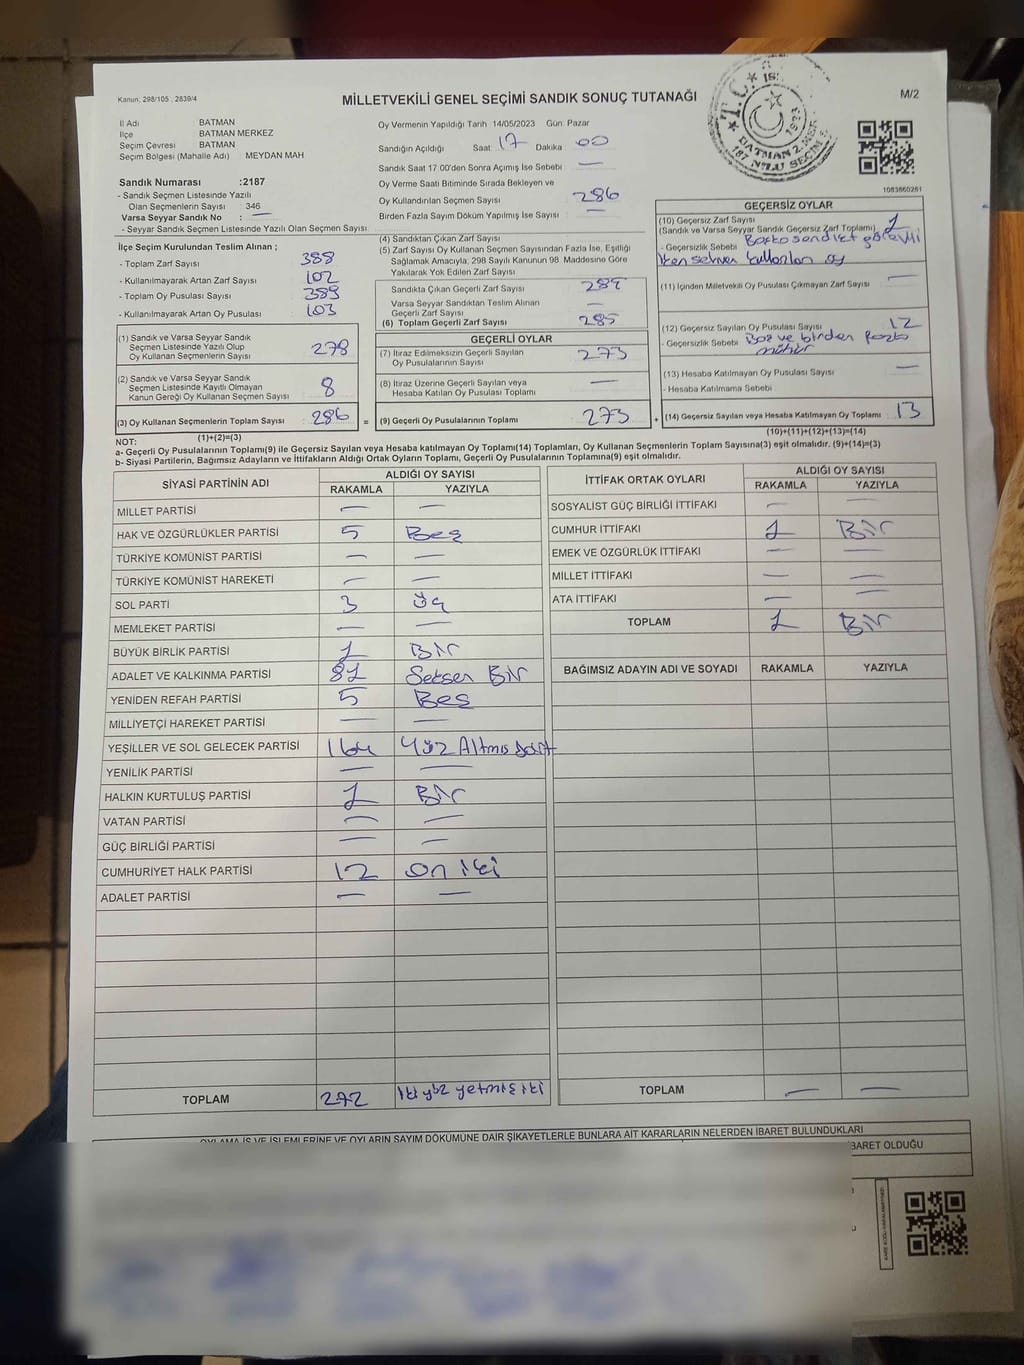 Kanun; 298/105 , 2839/4
MİLLETVEKİLİ GENEL SEÇİMİ SANDIK SONUÇ TUTANAĞI
M/2
İl Adı BATMAN
İlçe BATMAN MERKEZ
Seçim Çevresi BATMAN
Seçim Bölgesi (Mahalle Adı) : MEYDAN MAH
Sandık Numarası :2187
- Sandık Seçmen Listesinde Yazılı
Olan Seçmenlerin Sayısı : 346
Varsa Seyyar Sandık No : —
- Seyyar Sandık Seçmen Listesinde Yazılı Olan Seçmen Sayısı:
Oy Vermenin Yapıldığı Tarih 14/05/2023 Gün Pazar
Sandığın Açıldığı Saat 17 Dakika 00
Sandık Saat 17 00'den Sonra Açımış İse Sebebi —
Oy Verme Saati Bitiminde Sırada Bekleyen ve
Oy Kullandırılan Seçmen Sayısı 286
Birden Fazla Sayım Döküm Yapılmış İse Sayısı —
1083860261
İlçe Seçim Kurulundan Teslim Alınan ;
- Toplam Zarf Sayısı 388
- Kullanılmayarak Artan Zarf Sayısı 102
- Toplam Oy Pusulası Sayısı 389
- Kullanılmayarak Artan Oy Pusulası 103
(1) Sandık ve Varsa Seyyar Sandık
Seçmen Listesinde Yazılı Olup
Oy Kullanan Seçmenlerin Sayısı 278
(2) Sandık ve Varsa Seyyar Sandık
Seçmen Listesinde Kayıtlı Olmayan
Kanun Gereği Oy Kullanan Seçmen Sayısı 8
(3) Oy Kullanan Seçmenlerin Toplam Sayısı 286 =
(1)+(2)=(3)
(4) Sandıktan Çıkan Zarf Sayısı
(5) Zarf Sayısı Oy Kullanan Seçmen Sayısından Fazla İse, Eşitliği
Sağlamak Amacıyla, 298 Sayılı Kanunun 98 Maddesine Göre
Yakılarak Yok Edilen Zarf Sayısı
Sandıkta Çıkan Geçerli Zarf Sayısı
Varsa Seyyar Sandıktan Teslim Alınan
Geçerli Zarf Sayısı —
(6) Toplam Geçerli Zarf Sayısı 285
GEÇERLİ OYLAR
(7) İtiraz Edilmeksizin Geçerli Sayılan
Oy Pusulalarının Sayısı 273
(8) İtiraz Üzerine Geçerli Sayılan veya
Hesaba Katılan Oy Pusulası Toplamı —
(9) Geçerli Oy Pusulalarının Toplamı : 273 +
GEÇERSİZ OYLAR
(10) Geçersiz Zarf Sayısı
(Sandık ve Varsa Seyyar Sandık Geçersiz Zarf Toplamı) 1
- Geçersizlik Sebebi Başka sandıkta görevli
kullanılan oy
(11) İçinden Milletvekili Oy Pusulası Çıkmayan Zarf Sayısı —
(12) Geçersiz Sayılan Oy Pusulası Sayısı 12
- Geçersizlik Sebebi Boş ve birden fazla
mühür
(13) Hesaba Katılmayan Oy Pusulası Sayısı —
- Hesaba Katılmama Sebebi
(14) Geçersiz Sayılan veya Hesaba Katılmayan Oy Toplamı : 13
(10)+(11)+(12)+(13)=(14)
NOT:
a- Geçerli Oy Pusulalarının Toplamı(9) ile Geçersiz Sayılan veya Hesaba katılmayan Oy Toplamı(14) Toplamları, Oy Kullanan Seçmenlerin Toplam Sayısına(3) eşit olmalıdır. (9)+(14)=(3)
b- Siyasi Partilerin, Bağımsız Adayların ve İttifakların Aldığı Ortak Oyların Toplamı, Geçerli Oy Pusulalarının Toplamına(9) eşit olmalıdır.
SİYASİ PARTİNİN ADI ALDIĞI OY SAYISI
RAKAMLA YAZIYLA
MİLLET PARTİSİ — —
HAK VE ÖZGÜRLÜKLER PARTİSİ 5 Beş
TÜRKİYE KOMÜNİST PARTİSİ — —
TÜRKİYE KOMÜNİST HAREKETİ — —
SOL PARTİ 3 Üç
MEMLEKET PARTİSİ — —
BÜYÜK BİRLİK PARTİSİ 1 Bir
ADALET VE KALKINMA PARTİSİ 81 Seksen Bir
YENİDEN REFAH PARTİSİ 5 Beş
MİLLİYETÇİ HAREKET PARTİSİ — —
YEŞİLLER VE SOL GELECEK PARTİSİ 164 Yüz Altmış Dört
YENİLİK PARTİSİ — —
HALKIN KURTULUŞ PARTİSİ 1 Bir
VATAN PARTİSİ — —
GÜÇ BİRLİĞİ PARTİSİ — —
CUMHURİYET HALK PARTİSİ 12 on iki
ADALET PARTİSİ — —
TOPLAM 272 iki yüz yetmiş iki
İTTİFAK ORTAK OYLARI ALDIĞI OY SAYISI
RAKAMLA YAZIYLA
SOSYALİST GÜÇ BİRLİĞİ İTTİFAKI — —
CUMHUR İTTİFAKI 1 Bir
EMEK VE ÖZGÜRLÜK İTTİFAKI — —
MİLLET İTTİFAKI — —
ATA İTTİFAKI — —
TOPLAM 1 Bir
BAĞIMSIZ ADAYIN ADI VE SOYADI RAKAMLA YAZIYLA
TOPLAM — —
OYLAMA İŞ VE İŞLEMLERİNE VE OYLARIN SAYIM DÖKÜMÜNE DAİR ŞİKAYETLERLE BUNLARA AİT KARARLARIN NELERDEN İBARET BULUNDUKLARI
İBARET OLDUĞU